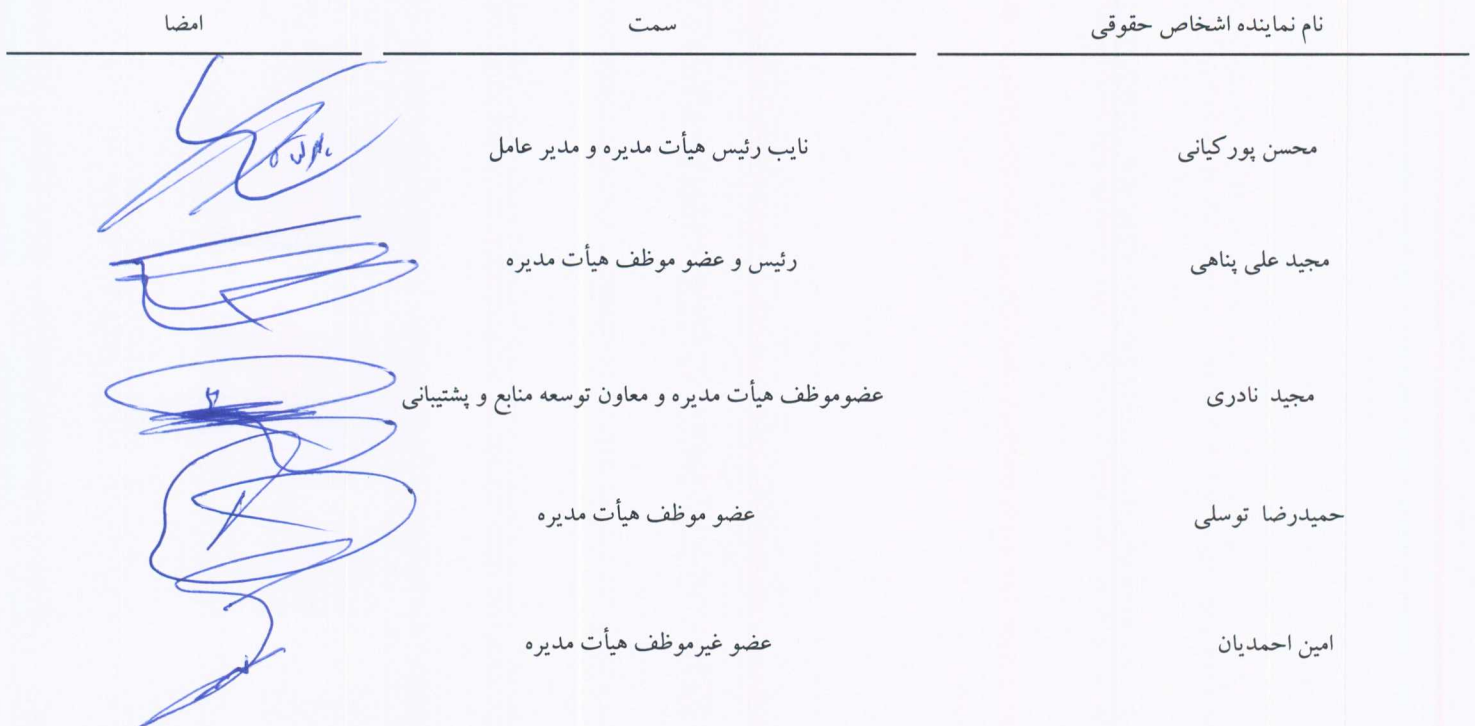 نام نماینده اشخاص حقوقی سمت امضا
محسن پورکیانی نایب رئیس هیأت مدیره و مدیر عامل
مجید علی پناهی رئیس و عضو موظف هیأت مدیره
مجید نادری عضوموظف هیأت مدیره و معاون توسعه منابع و پشتیبانی
حمیدرضا توسلی عضو موظف هیأت مدیره
امین احمدیان عضو غیرموظف هیأت مدیره